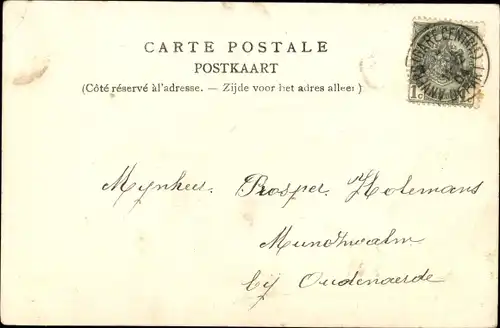 CARTE POSTALE
POSTKAART
(Côté réservé àl'adresse. — Zijde voor het adres alleen)
Mynheer Prosper Holemans
by Oudenaerde